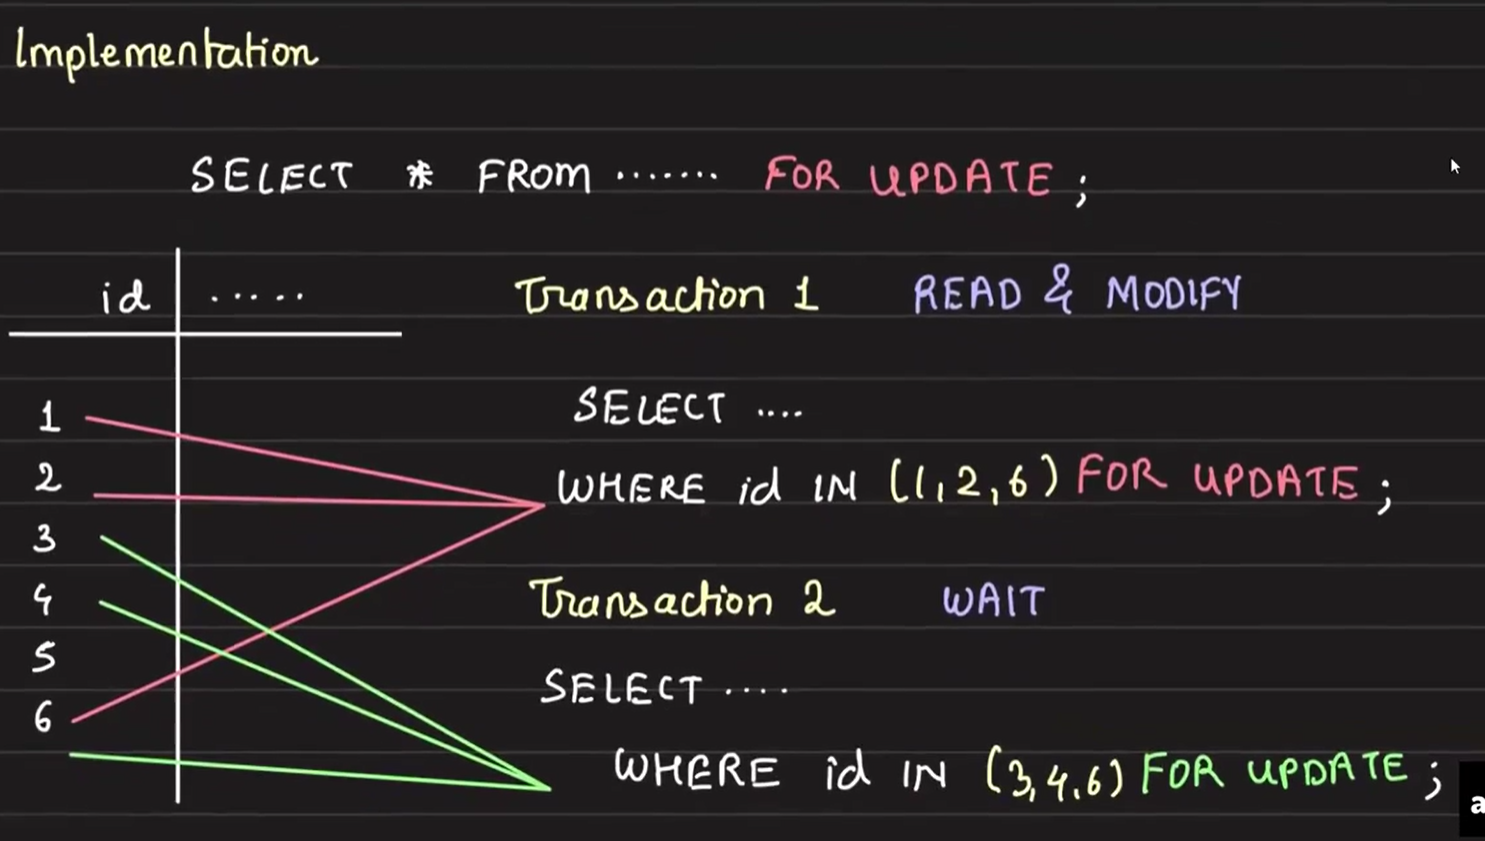 Implementation
SELECT * FROM ....... FOR UPDATE ;
id .....
Transaction 1 READ & MODIFY
1
2
3
4
5
6
SELECT ....
WHERE id IN (1,2,6) FOR UPDATE ;
Transaction 2 WAIT
SELECT ....
WHERE id IN (3,4,6) FOR UPDATE ;
a